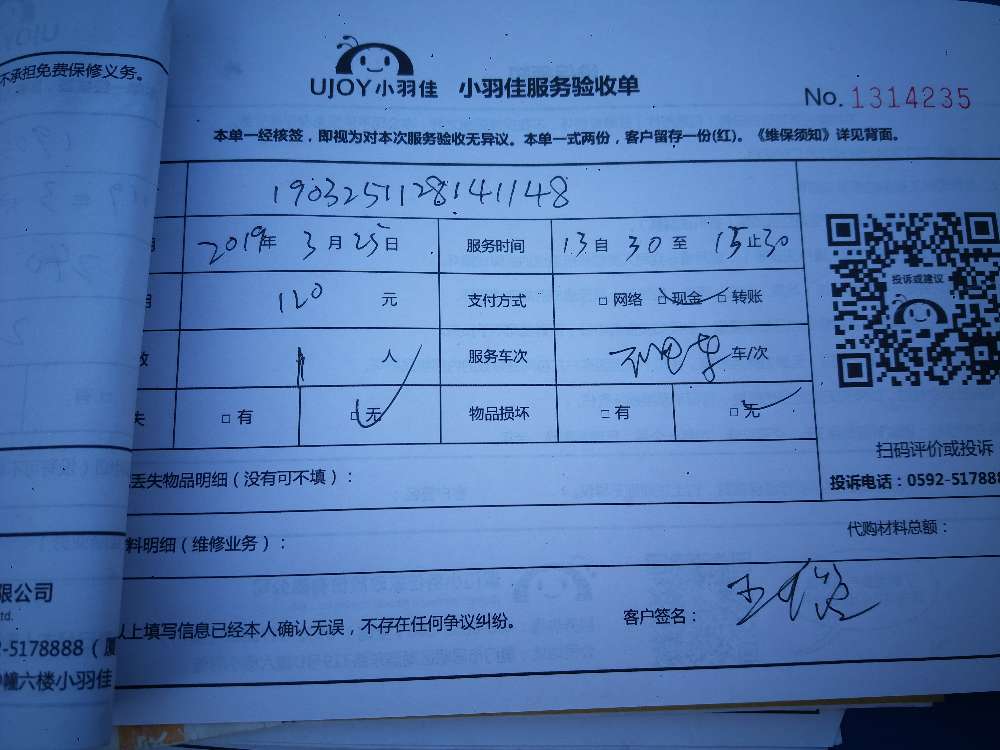 不承担免费保修义务。
UJOY小羽佳 小羽佳服务验收单
No. 1314235
本单一经核签，即视为对本次服务验收无异议。本单一式两份，客户留存一份(红)。《维保须知》详见背面。
1903251128141148
2019年 3月25日 服务时间 13自30至15止30
120 元 支付方式 □网络 □现金 □转账
投诉或建议
1 人 服务车次 车/次
失 □有 □无 物品损坏 □有 □无
扫码评价或投诉
丢失物品明细（没有可不填）：
投诉电话：0592-517888
料明细（维修业务）： 代购材料总额：
限公司
td.
以上填写信息已经本人确认无误，不存在任何争议纠纷。 客户签名：
2-5178888（厦
幢六楼小羽佳